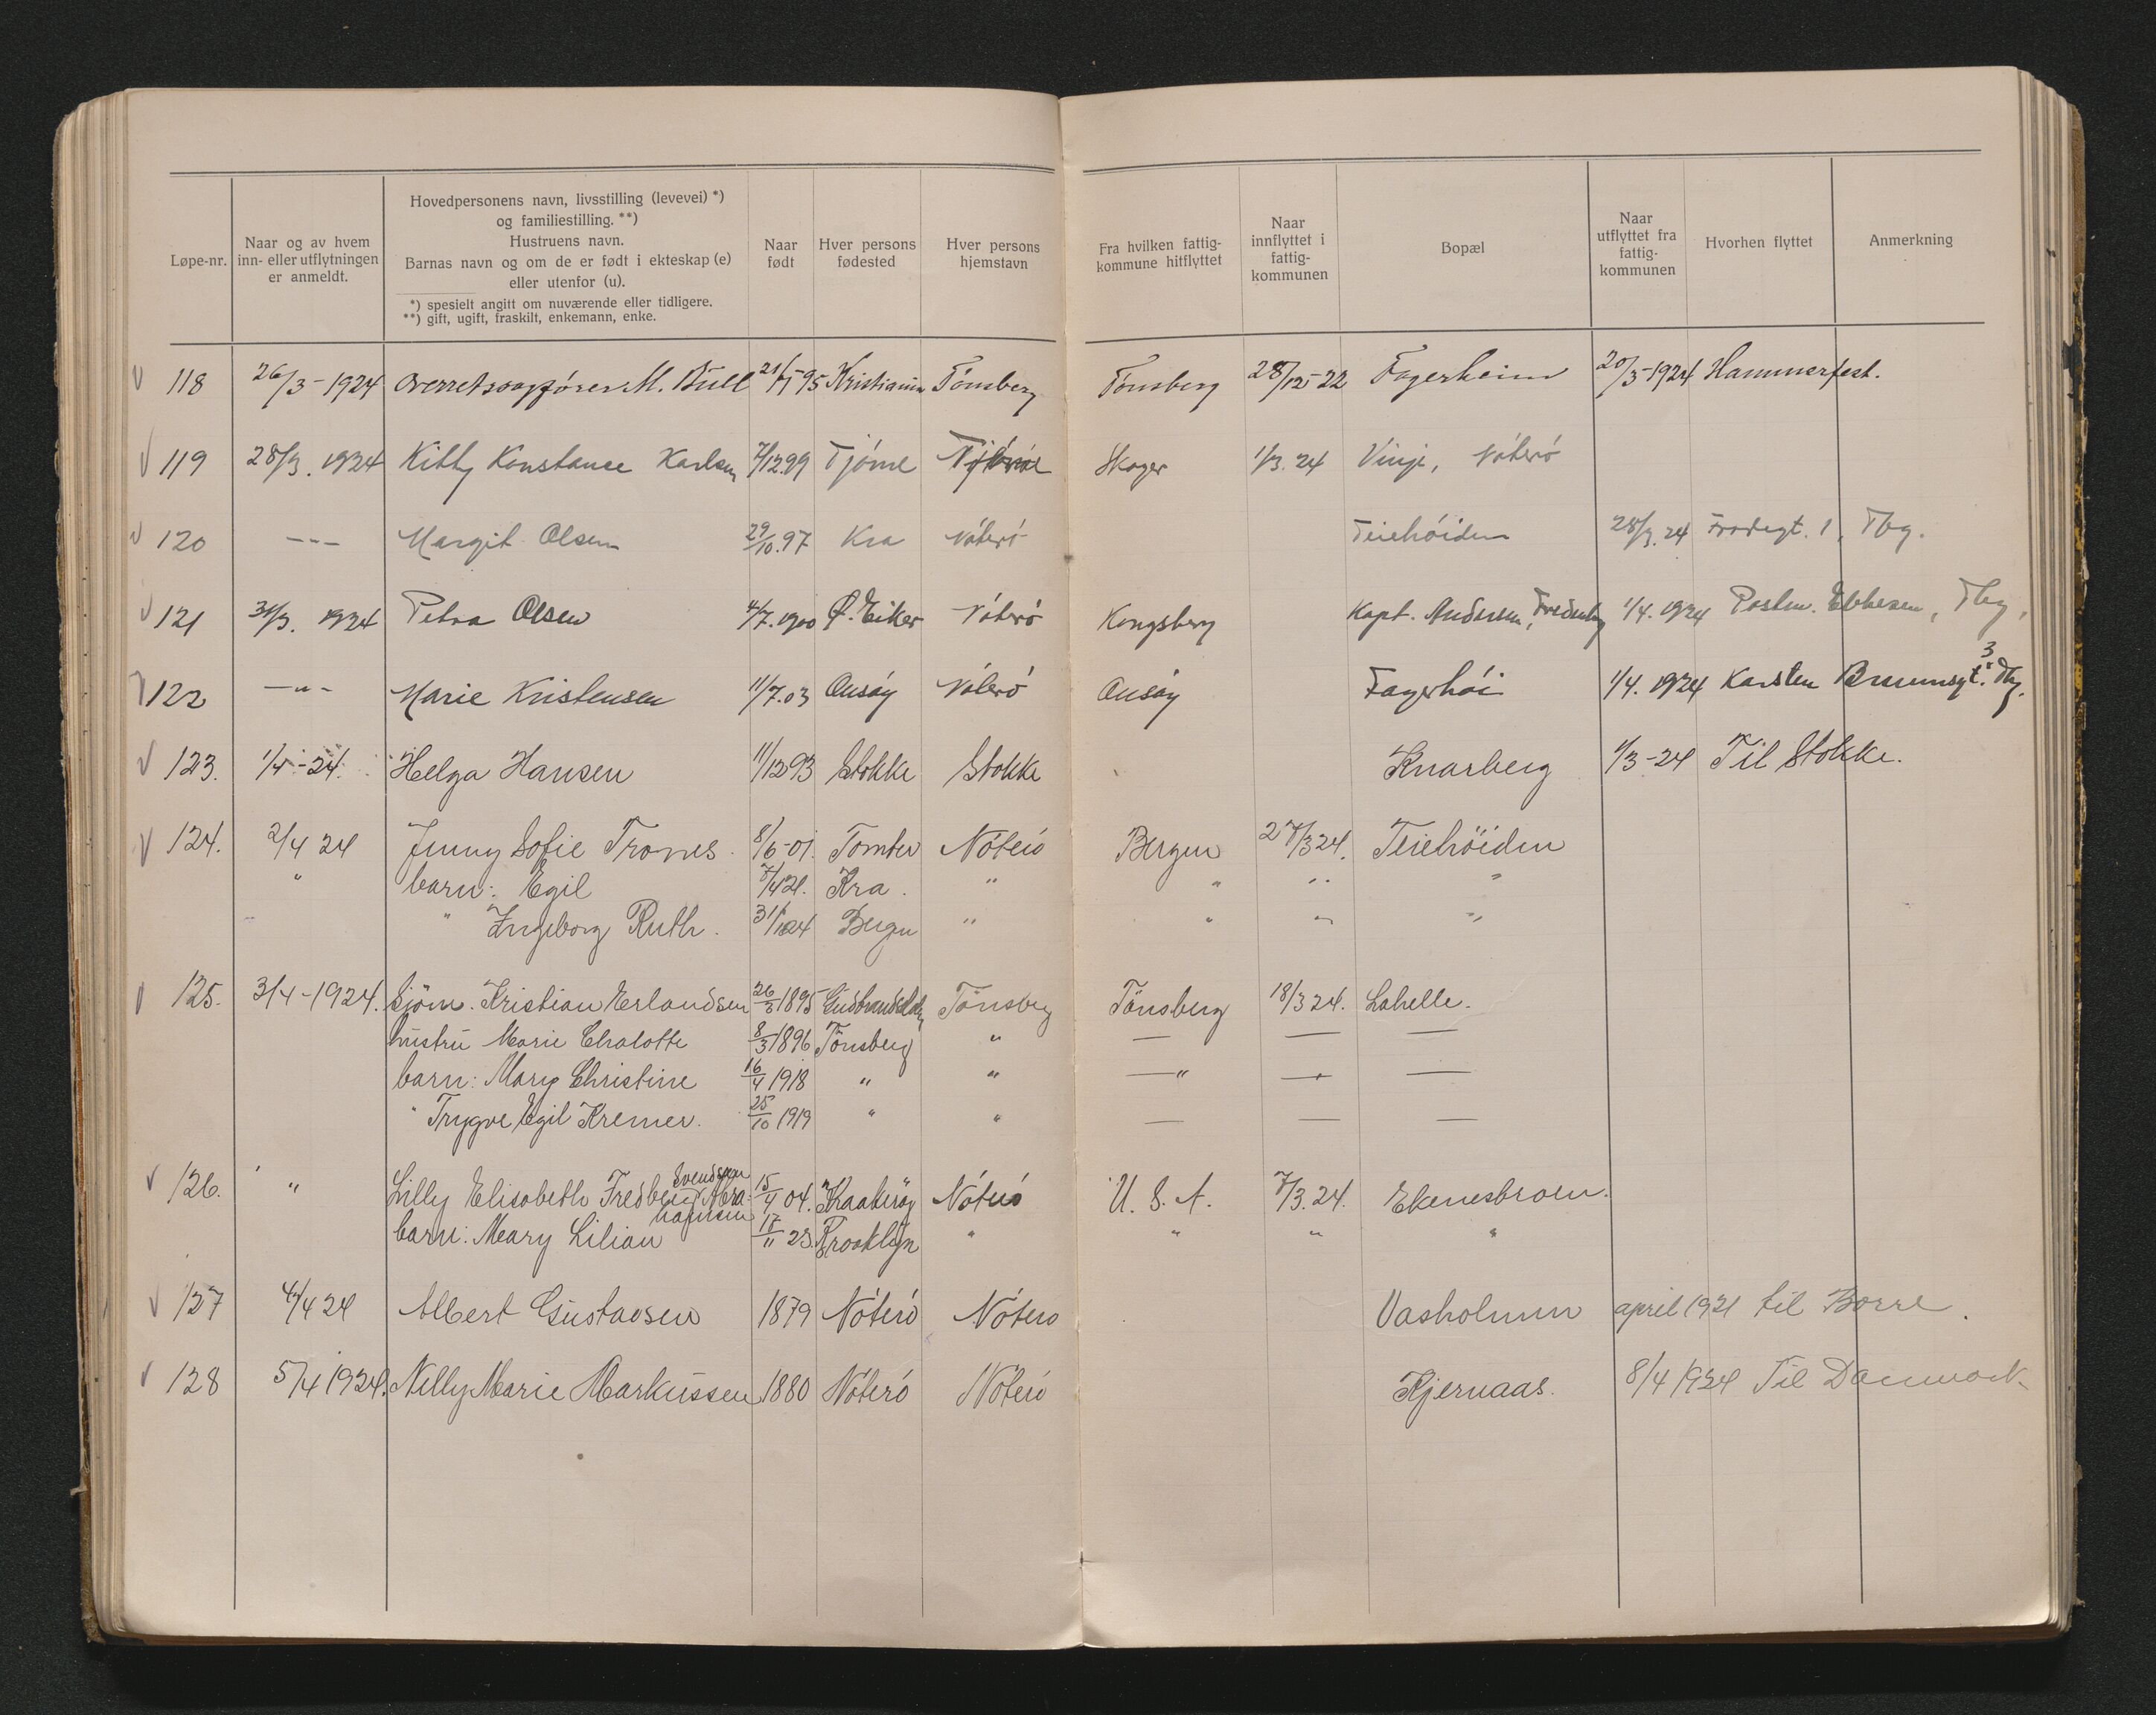 Løpe-nr.
Naar og av hvem
inn- eller utflytningen
er anmeldt.
Hovedpersonens navn, livsstilling (levevei) *)
og familiestilling. **)
Hustruens navn.
Barnas navn og om de er født i ekteskap (e)
eller utenfor (u).
*) spesielt angitt om nuværende eller tidligere.
**) gift, ugift, fraskilt, enkemann, enke.
Naar
født
Hver persons
fødested
Hver persons
hjemstavn
Fra hvilken fattig-
kommune hitflyttet
Naar
innflyttet i
fattig-
kommunen
Bopæl
Naar
utflyttet fra
fattig-
kommunen
Hvorhen flyttet
Anmerkning
118 26/3-1924 Overretssagfører M. Bull Kristiania Tönsberg Tönsberg 28/12-22 Fagerheim 20/3-1924 Hammerfest.
119 28/3. 1924 Kitty Konstance Karlsen 7/12.99 Tjöme Skoger 1/3. 24 Vinje, Nöterö
120 -"- Margit Olsen 29/10.97 Kra Nöterö Teiehöiden 28/3.24 1, Tbg.
121 31/3. 1924 Petra Olsen 4/7.1900 Ø. Eiker Nöterö Kongsberg Kapt. Andersen, 1/4.1924 Postm. Ebbesen, Tbg.
122 -"- Marie Kristensen 11/7.03 Onsöy Nöterö Onsöy Fagerhöi 1/4. 1924 Karsten Bruunsgt. 3 Tbg.
123. 1/4-24. Helga Hansen 11/12 93 Stokke Stokke Knarberg 1/3-24 Til Stokke.
124. 2/4 24 Jenny Sofie Trones 8/6-01. Tomter Nöterö Bergen 27/3 24. Teiehöiden
" barn: Egil 7/4 21. Kra. " " " "
" Ingeborg Ruth. 31/1 24 Bergen " " " "
125. 3/4-1924. Sjöm. Kristian Erlandsen 26/3 1895 Gudbrandsdalen Tönsberg Tönsberg 18/3 24. Lahelle.
hustru Marie Chalotte 8/3 1896 Tönsberg " — — —
barn: Mary Christine 16/4 1918 " " —"— — —
" Trygve Egil Kremer. 25/10 1919 " " — — —
126. " Lilly Elisabeth Fredberg Svendsen Abrahamsen 15/4 04. Kraakeröy Nöterö U. S. A. 7/3. 24. Ekenesbroen.
barn: Mary Lilian 17/11 23. Brooklyn " " " "
127 4/4 24 Albert Gustavsen 1879 Nöterö Nöterö Vasholmen april 1921 til Borre.
128 5/4 1924. Nelly Marie Markussen 1880 Nöterö Nöterö Kjernaas. 8/4 1924 Til Danmark